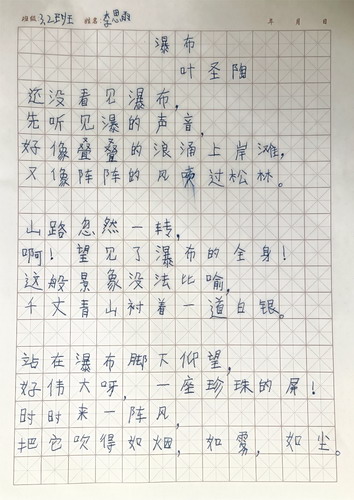 班级 3.2班 姓名 李思雨 年 月 日
瀑布
叶圣陶
还没看见瀑布,
先听见瀑的声音,
好像叠叠的浪涌上岸滩,
又像阵阵的风吹过松林。
山路忽然一转,
啊!望见了瀑布的全身!
这般景象没法比喻,
千丈青山衬着一道白银。
站在瀑布脚下仰望,
好伟大呀,一座珍珠的屏!
时时来一阵风,
把它吹得如烟,如雾,如尘。